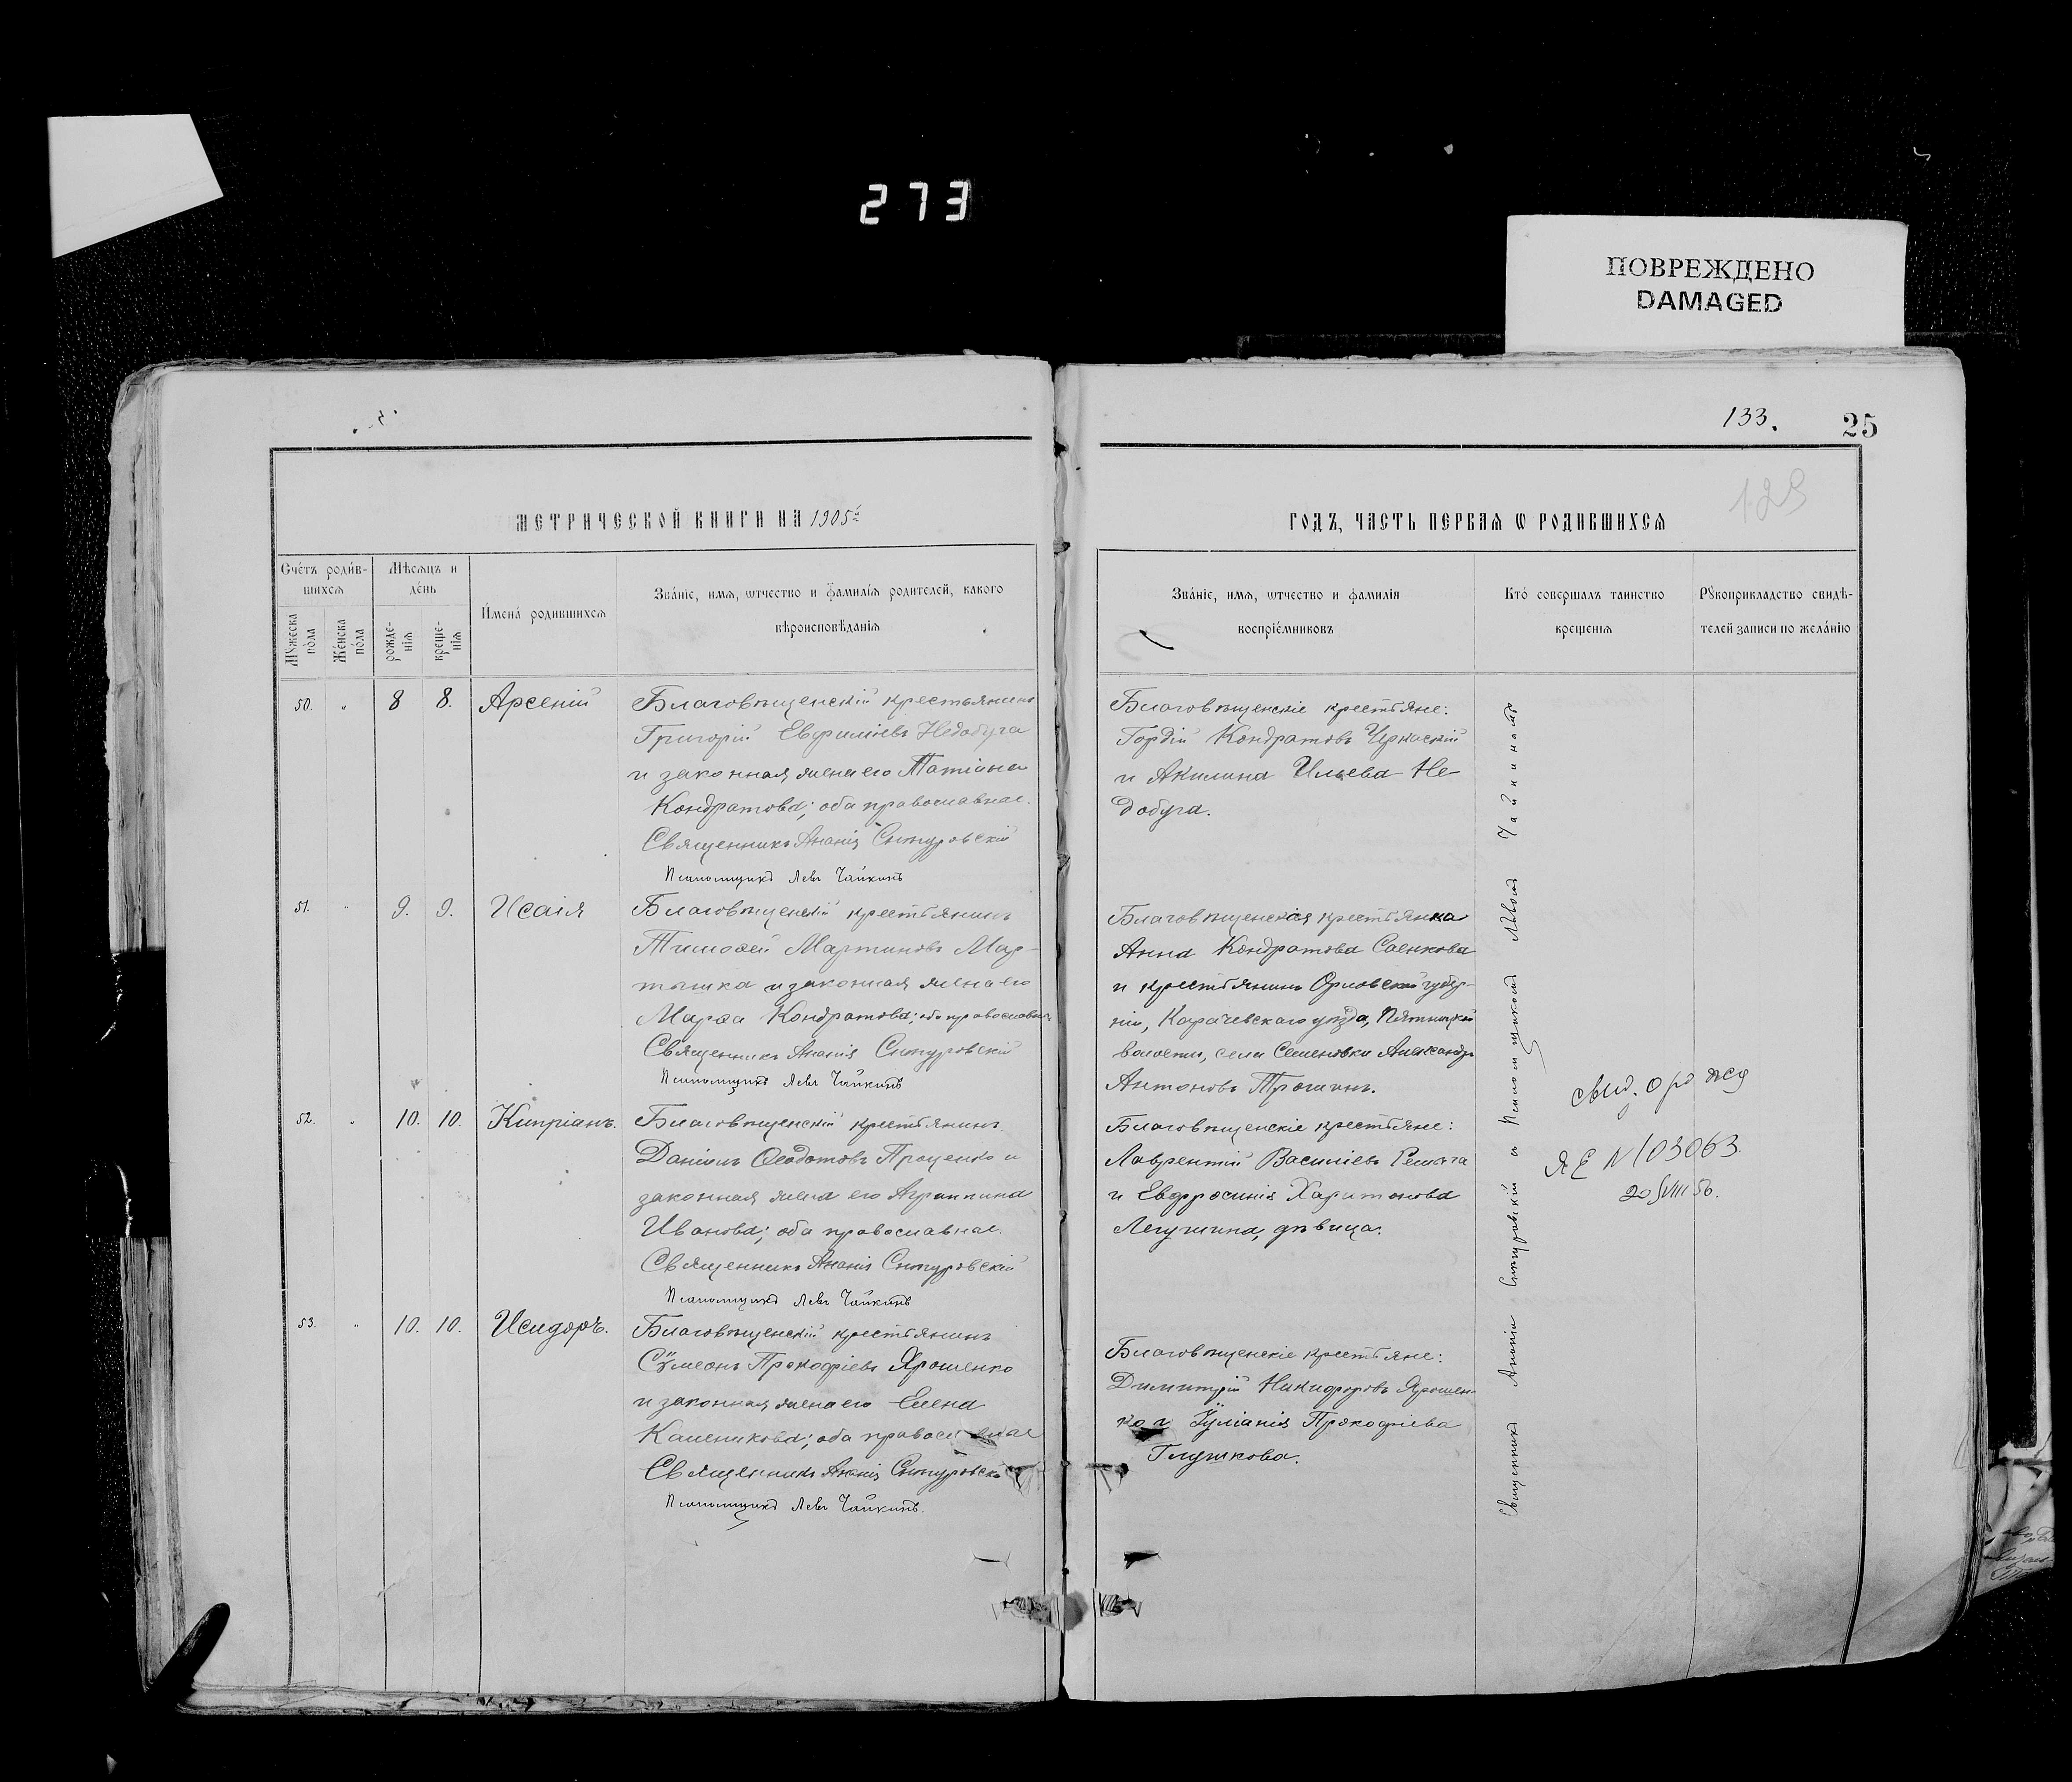 273
ПОВРЕЖДЕНО
DAMAGED
133.
25
129
МЕТРИЧЕСКОЙ КНИГИ НА 1905й
ГОДЪ, ЧАСТЬ ПЕРВАЯ Ѡ РОДИВШИХСЯ
Счётъ родив-
шихся
Мѣсяцъ и
день
Мужеска
пола
Женска
пола
рожде-
нія
креще-
нія
Имена родившихся
Званіе, имя, ѡтчество и фамилія родителей, какого
вѣроисповѣданія
Званіе, имя, ѡтчество и фамилія
воспріемниковъ
Кто совершалъ таинство
крещенія
Рукоприкладство свидѣ-
телей записи по желанію
50. " 8 8. Арсеній
Благовѣщенскій крестьянинъ
Григорій Евфиміевъ Недобуга
и законная жена его Татіана
Кондратова; оба православные.
Священникъ Ананія Снтуровскій
Псаломщикъ Левъ Чайкинъ
Благовѣщенскіе крестьяне:
Гордій Кондратовъ Черкаскій
и Акилина Ильева Не-
добуга.
51. " 9. 9. Исаія
Благовѣщенскій крестьянинъ
Тимоѳей Мартиновъ Мар-
тышка и законная жена его
Марѳа Кондратова; оба православные
Священникъ Ананія Снтуровскій
Псаломщикъ Левъ Чайкинъ
Благовѣщенская крестьянка
Анна Кондратова Саенкова
и крестьянинъ Орловской губер-
ніи, Карачевскаго уѣзда, Пятницкой
волости, села Семеновки Александръ
Антоновъ Трошинъ.
52. " 10. 10. Кипріанъ.
Благовѣщенскій крестьянинъ
Даніилъ Ѳеодотовъ Проценко и
законная жена его Агриппина
Иванова; оба православные.
Священникъ Ананія Снтуровскій
Псаломщикъ Левъ Чайкинъ
Благовѣщенскіе крестьяне:
Лаврентій Василіевъ
и Евфросинія Харитонова
Легушина, дѣвица.
свид. о рожд
ЯЕ N 103063
20/VIII 56.
53. " 10. 10. Исидоръ.
Благовѣщенскій крестьянинъ
Сѵмеонъ Прокофіевъ Ярошенко
и законная жена его Елена
Каленикова; оба православные
Священникъ Ананія Снтуровскій
Псаломщикъ Левъ Чайкинъ.
Благовѣщенскіе крестьяне:
Димитрій Никифоровъ Ярошен-
ко и Іуліанія Прокофіева
Глушкова.
Священникъ Ананія Снтуровскій съ Псаломщикомъ Львомъ Чайкинымъ